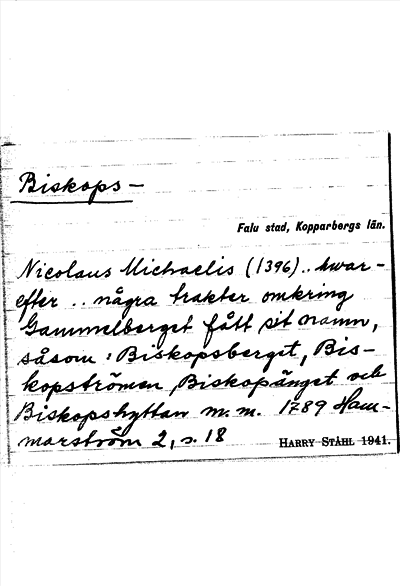 Biskops-
Falu stad, Kopparbergs län.
Nicolaus Michaelis (1396) .. hwar-
efter .. några trakter omkring
Gammelberget fått sit namn,
såsom : Biskopsberget, Bis-
kopströmen, Biskopänget och
Biskopshyttan m. m. 1789 Ham-
marström 2, s. 18
HARRY STÅHL 1941.